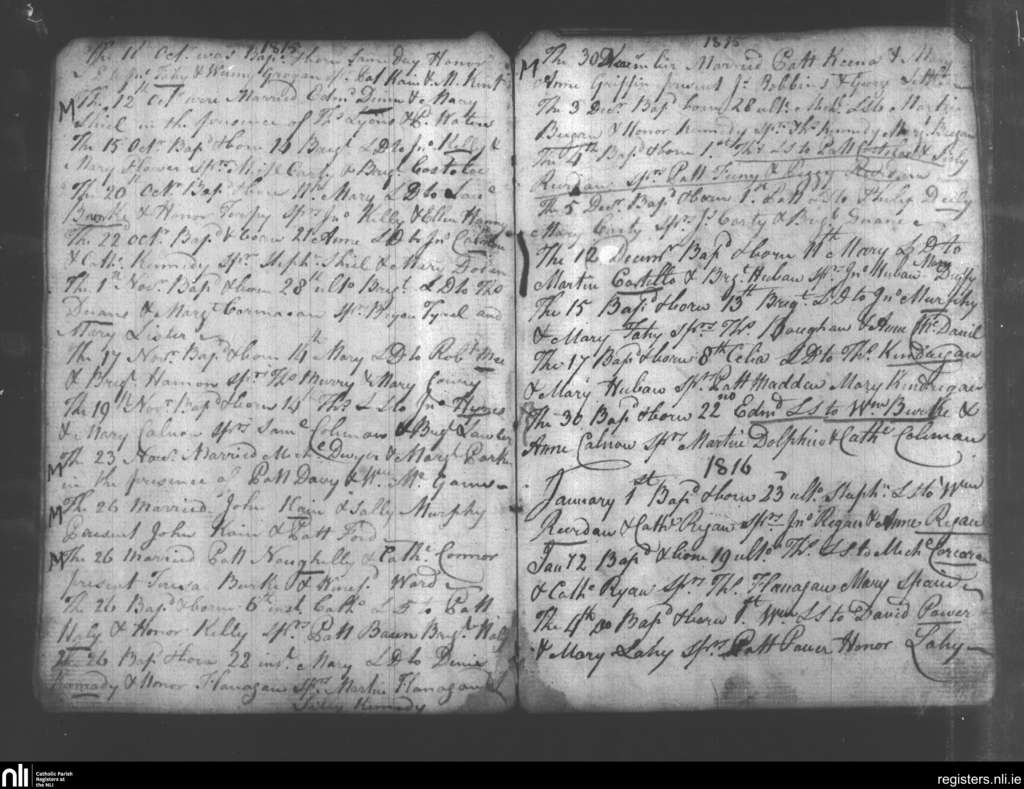 1815
The 11 Oct was Bapd & born Same day Honor
LD to Jno Fahy & Winny Grogan Sprs Patt Kain & M. Kent
M The 12th Oct were Married Edmd Dunn & Mary
Shiel in the presence of Thos Lyons &
The 15 Octr Bapd & born 14 Brigt LD to Jno Kelly &
Mary Hower Sprs & Brigt Costoloe
The 20th Octr Bapd & born Mary LD to
Burke & Honor Torpy Sprs Jno Kelly & Ellen
The 22d Octr Bapd & born 21st Anne LD to Jno
& Cathe Kennedy Sprs Stephn Shiel & Mary
The 1st Novr Bapd & born 28th ulto Brigt LD to Thos
Duane & Margt Cormacan Sprs Bryan Tyrel and
Mary Lister
The 17 Novr Bapd & born 14th Mary LD to Robt
& Brigt Hannon Sprs Thos Murry & Mary Gowry
The 19th Novr Bapd & born 14 Thos LS to Jno Hynes
& Mary Calnon Sprs Saml Coleman & Brigt Lawler
M The 23 Novr Married Mich Dwyer & Margt Burke
in the presence of Patt Davy & Wm Mc
M The 26 Married John Kain & Sally Murphy
Present John Kain & Patt Ford
M The 26 Married Patt Naughelly & Cathe Connor
present Teresa Burke & Winefd Ward
The 26 Bapd & born 6th inst Cathe LD to Patt
Haly & Honor Kelly Sprs Patt Brigt Haly
The 26 Bapd & born 22 inst Mary LD to Denis
Kennedy & Honor Flanagan Sprs Martin Flanagan &
Sally Kennedy
1815
M The 30 Married Patt Keena & Mary
Anne Griffin present Jno Robbins & Geory
The 3 Decr Bapd born 28 ulto LS to Martin
Began & Honor Kennedy Sprs Thos Kennedy Margt Began
The 4th Bapd & born 1st Thos LS to Patt Costeloe & Sisly
Reordan Sprs Patt Feeny & Peggy Reordan
The 5 Decr Bapd & born 1st Patt LS to Philip Deily
& Mary Carty Sprs Jno Carty & Brigt Duane
The 12 Decemr Bapd & born 11th Mary LD to
Martin Costello & Brigt Huban Sprs Jno Huban Mary Duffy
The 15 Bapd & born 13th Brigt LD to Jno Murphy
& Mary Fahy Sprs Thos Boughan & Anne McDaniel
The 17 Bapd & born 8th Celia LD to Thos Kindrigan
& Mary Huban Sprs Patt Madden Mary Kindregan
The 30 Bapd & born 22nd Edmd LS to Wm Burke &
Anne Calnon Sprs Martin Dolphin & Cathe Coleman
1816
January 1st Bapd & born 23d ulto Stephn LS to Wm
Reordan & Cathe Ryan Sprs Jno Regan & Anne Regan
Jan 12 Bapd & born 19 ulto Thos LS to Miche Corcoran
& Cathe Ryan Sprs Thos Flanagan Mary Spain
The 4th Do Bapd & born 1st Wm LS to David Power
& Mary Lahy Sprs Patt Power Honor Lahy
nli
Catholic Parish
Registers at
the NLI
registers.nli.ie